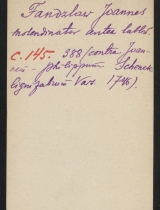 Fandzlaw Joannes
molendinator antea tablt.
C. 145. 388/contra Joan-
nem - Philippum Schenck
lignifabrum Vars. 1746).